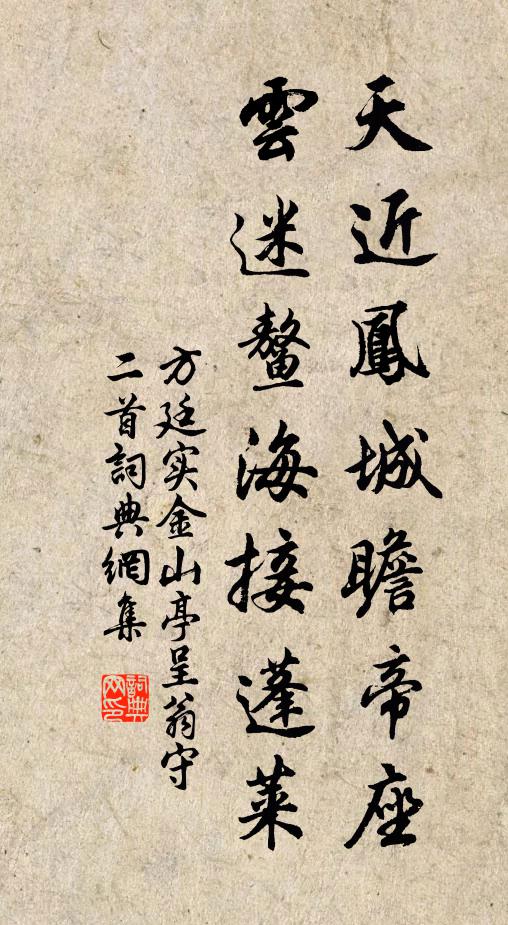 天近鳳城瞻帝座
雲迷鰲海接蓬萊
方廷实金山亭呈翁守
二首詞典網集
詞典網印